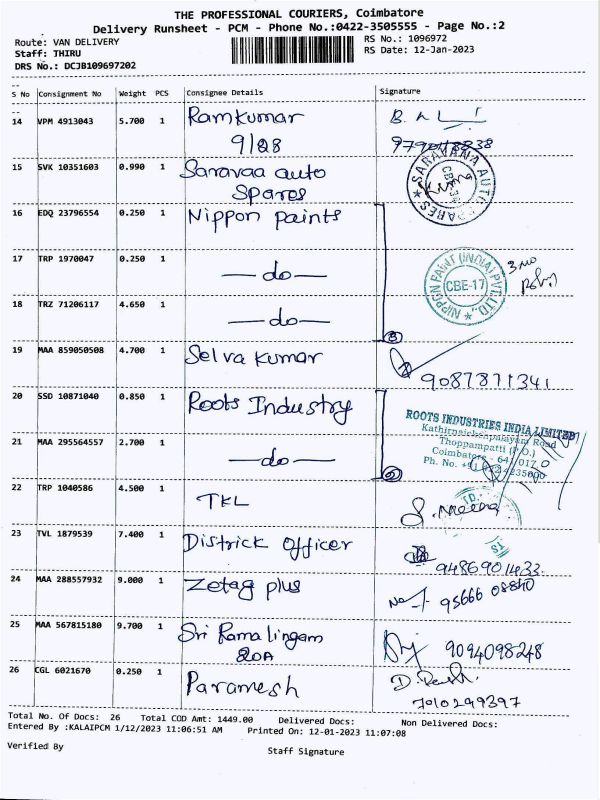 THE PROFESSIONAL COURIERS, Coimbatore
Delivery Runsheet - PCM - Phone No.:0422-3505555 - Page No.:2
Route: VAN DELIVERY RS No.: 1096972
Staff: THIRU RS Date: 12-Jan-2023
DRS No.: DCJB109697202
S No Consignment No Weight PCS Consignee Details Signature
14 VPM 4913043 5.700 1 Ramkumar
9/88
15 SVK 10351603 0.990 1 Saravaa auto
Spares
SARAVANA AUTO SPARES
16 EDQ 23796554 0.250 1 Nippon paints
17 TRP 1970047 0.250 1 — do —
NIPPON PAINT (INDIA) PVT. LTD.
CBE-17
18 TRZ 71206117 4.650 1 — do —
3
19 MAA 859050508 4.700 1 Selva Kumar
9087871341
20 SSD 10871040 0.850 1 Roots Industry
ROOTS INDUSTRIES INDIA LIMITED
Kathirnaickenpalayam Road
Thoppampatti (P.O.)
Coimbatore - 641 017.
21 MAA 295564557 2.700 1 — do —
Ph. No.
22 TRP 1040586 4.500 1 TKL S. Meena
23 TVL 1879539 7.400 1 Districk Officer
9486901433
24 MAA 288557932 9.000 1 Zetag plus 95666 08840
25 MAA 567815180 9.700 1 Sri Rama lingam 9094098248
20A
26 CGL 6021670 0.250 1 Paramesh
7010299397
Total No. Of Docs: 26 Total COD Amt: 1449.00 Delivered Docs: Non Delivered Docs:
Entered By :KALAIPCM 1/12/2023 11:06:51 AM Printed On: 12-01-2023 11:07:08
Verified By Staff Signature